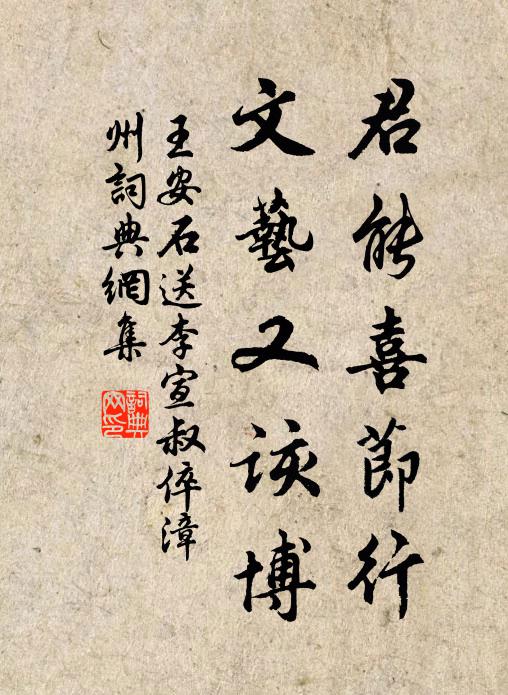 君能喜節行
文藝又該博
王安石送李宣叔倅漳
州詞典網集
詞典網印